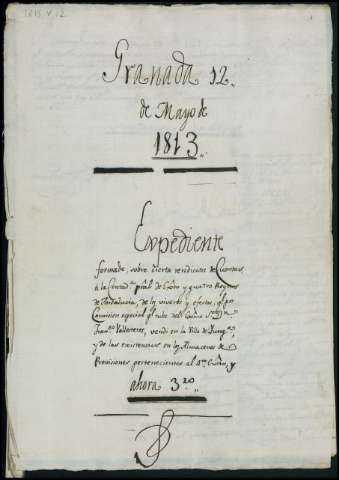 1813 V 12
Granada 12
de Mayo de
1813
Expediente
formado, sobre cierta rendicion de Cuentas
à la Contad.ª pral. de Exto y quatro Reynos
de Andalucia, de los viveres y efectos, q.e por
Comision especial q.e tubo del Exmo S.or D.n
Fran.co Vallesteros, vendió en la Villa de
y de las existencias en los Almacenes de
Provisiones pertenecientes al 4.to Exto, y
ahora 3.ro